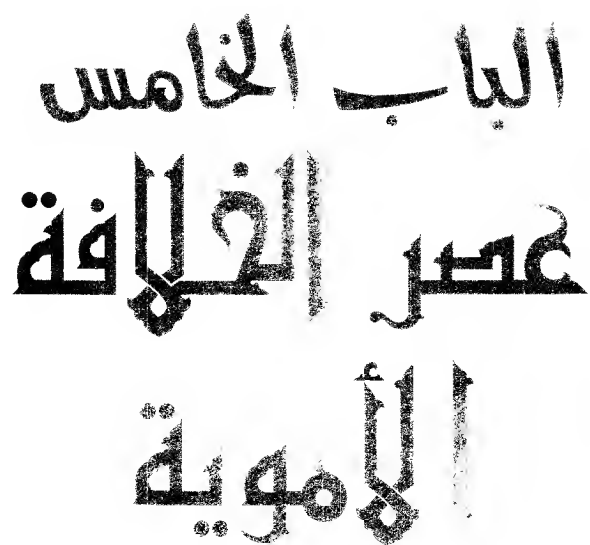 الباب الخامس
عصر الخلافة
الأموية